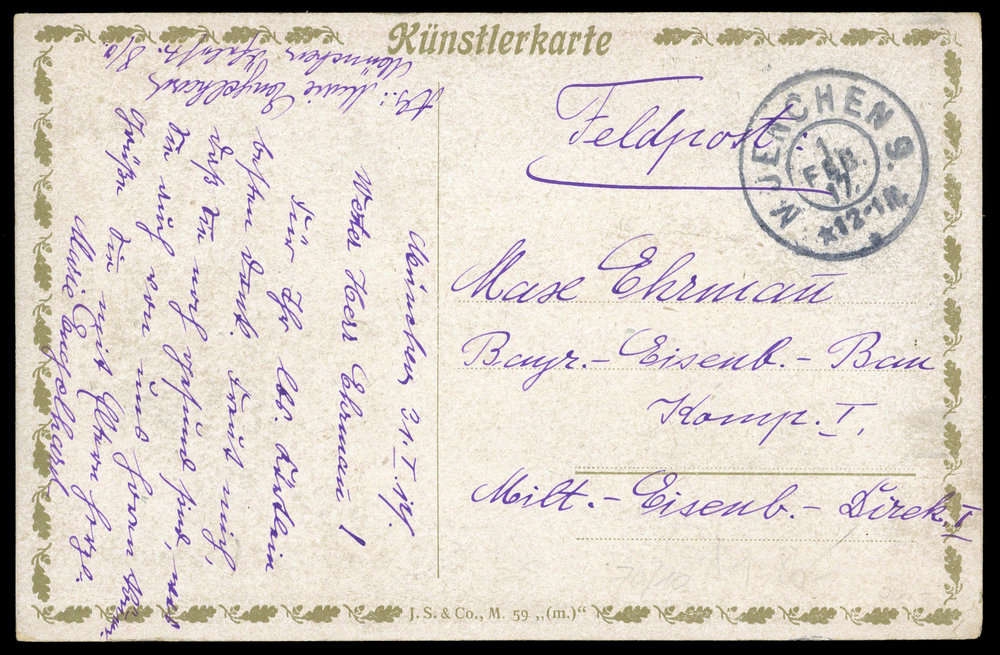 Künstlerkarte
Feldpost.
MUENCHEN 9.
1.
FEB.
17.
*12-1N.
Max Ehrmañ
Bayr.- Eisenb.- Bau
Komp. I.
Milt.- Eisenb.- Direk. I
München 31. I. 17.
Werter Herr Ehrmann!
Für Ihr lb. Kärtlein
besten Dank. Freut mich,
daß Sie noch gesund sind, was
Sie auch von uns hören können.
Grüße Sie mit Eltern herzl.
Marie Engelhard
Ab.: Marie Engelhard
München
J. S. & Co., M. 59 „(m.)“